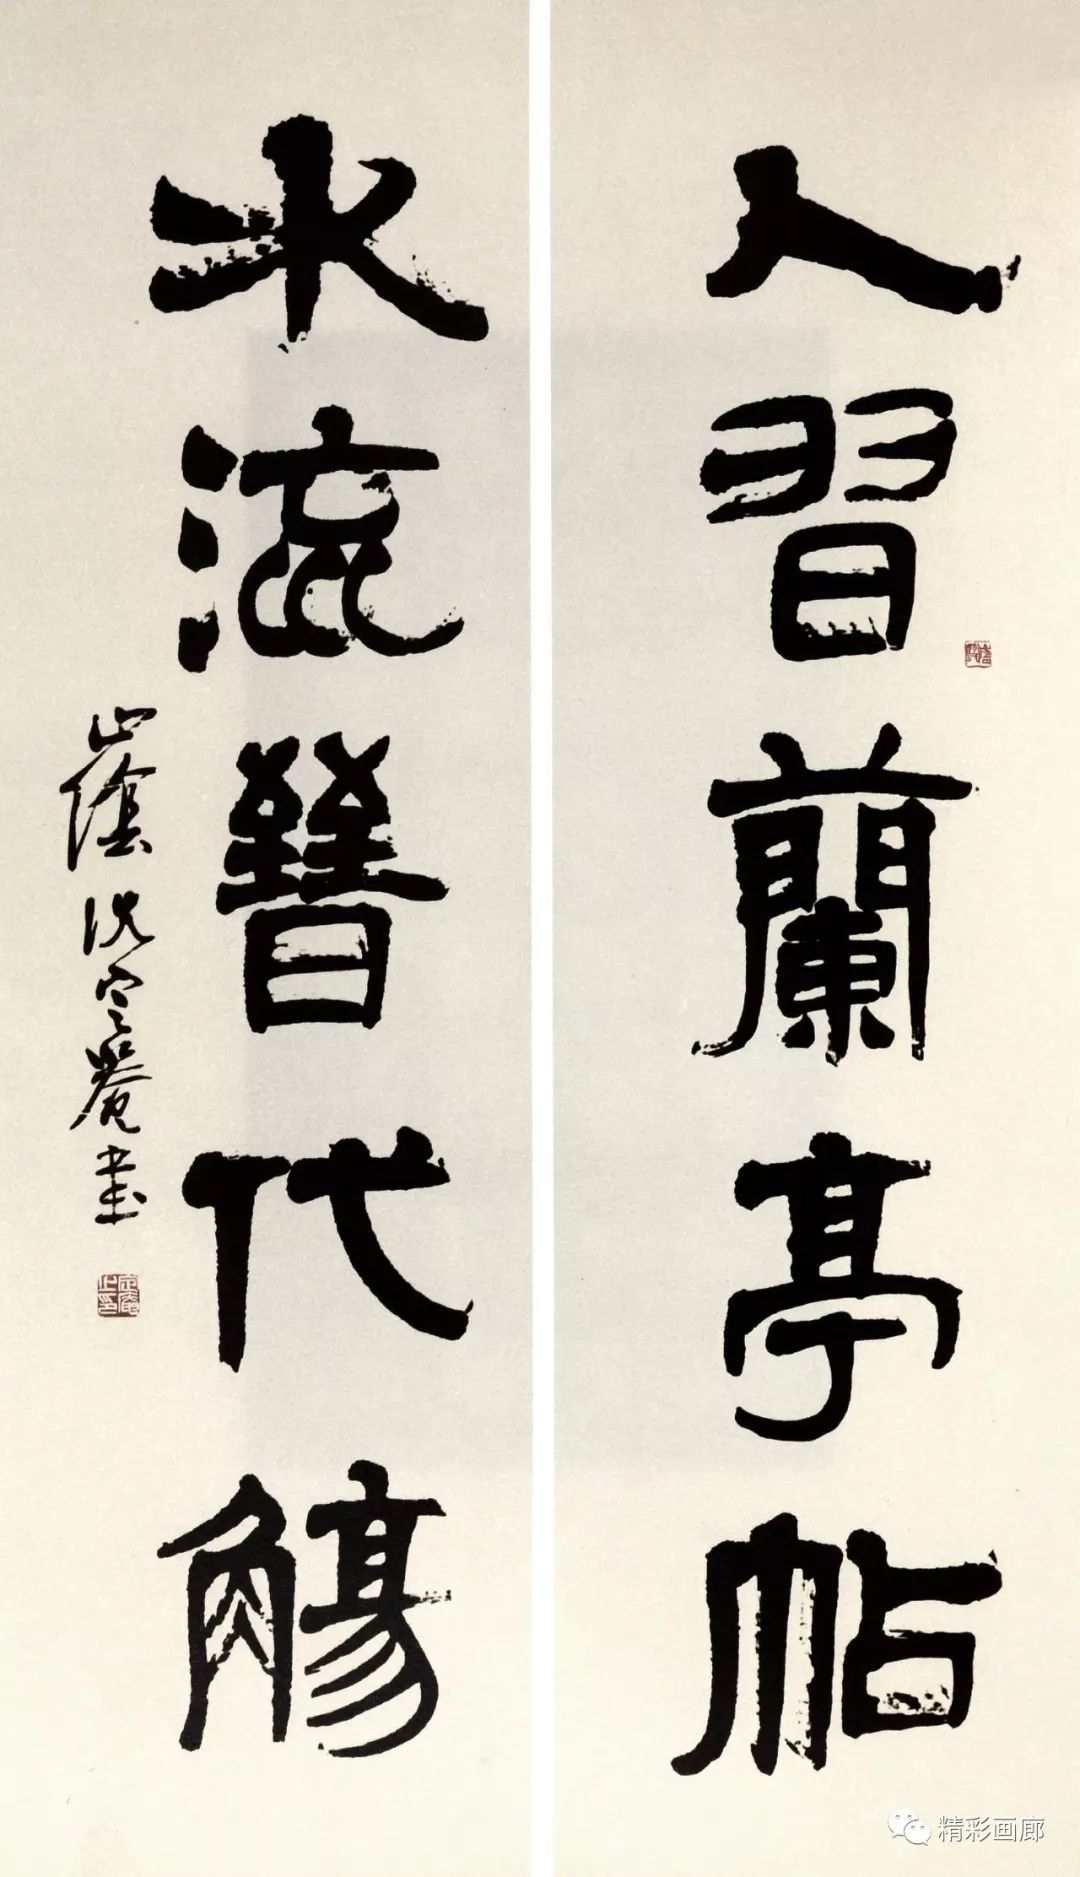 人習蘭亭帖
水流晉代觴
山陰沈定庵書
定庵
精彩画廊